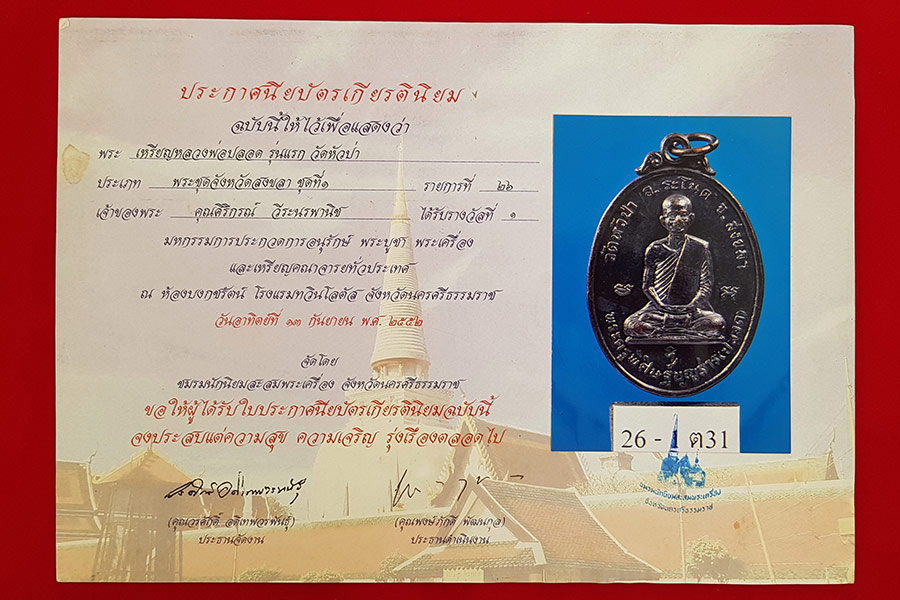 ประกาศนียบัตรเกียรตินิยม
ฉบับนี้ให้ไว้เพื่อแสดงว่า
พระ เหรียญหลวงพ่อปลอด รุ่นแรก วัดหัวป่า
ประเภท พระชุดจังหวัดสงขลา ชุดที่๑ รายการที่ ๒๖
เจ้าของพระ คุณศิริกรณ์ วีระนรพานิช ได้รับรางวัลที่ ๑
มหกรรมการประกวดการอนุรักษ์ พระบูชา พระเครื่อง
และเหรียญคณาจารย์ทั่วประเทศ
ณ ห้องบงกชรัตน์ โรงแรมทวินโลตัส จังหวัดนครศรีธรรมราช
วันอาทิตย์ที่ ๑๓ กันยายน พ.ศ. ๒๕๕๒
จัดโดย
ชมรมนักนิยมสะสมพระเครื่อง จังหวัดนครศรีธรรมราช
ขอให้ผู้ได้รับใบประกาศนียบัตรเกียรตินิยมฉบับนี้
จงประสบแต่ความสุข ความเจริญ รุ่งเรืองตลอดไป
(คุณวรศักดิ์ อดิเทพวรพันธุ์)
ประธานจัดงาน
(คุณพงษ์ภักดิ์ พัฒนกุล)
ประธานดำเนินงาน
วัดหัวป่า อ.ระโนด จ.สงขลา
26 - 1 ต31
ชมรมนักนิยมสะสมพระเครื่อง
จังหวัดนครศรีธรรมราช